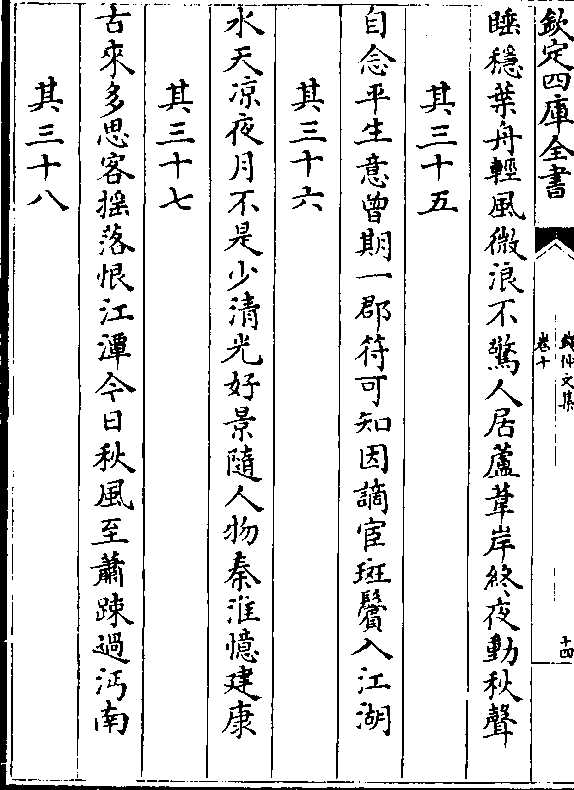 欽定四庫全書
錢仲文集
卷十
十四
睡穩葉舟輕風微浪不驚人居蘆葦岸終夜動秋聲
其三十五
自念平生意曾期一郡符可知因謫宦斑鬢入江湖
其三十六
水天凉夜月不是少清光好景隨人物秦淮憶建康
其三十七
古來多思客摇落恨江潭今日秋風至蕭踈過沔南
其三十八